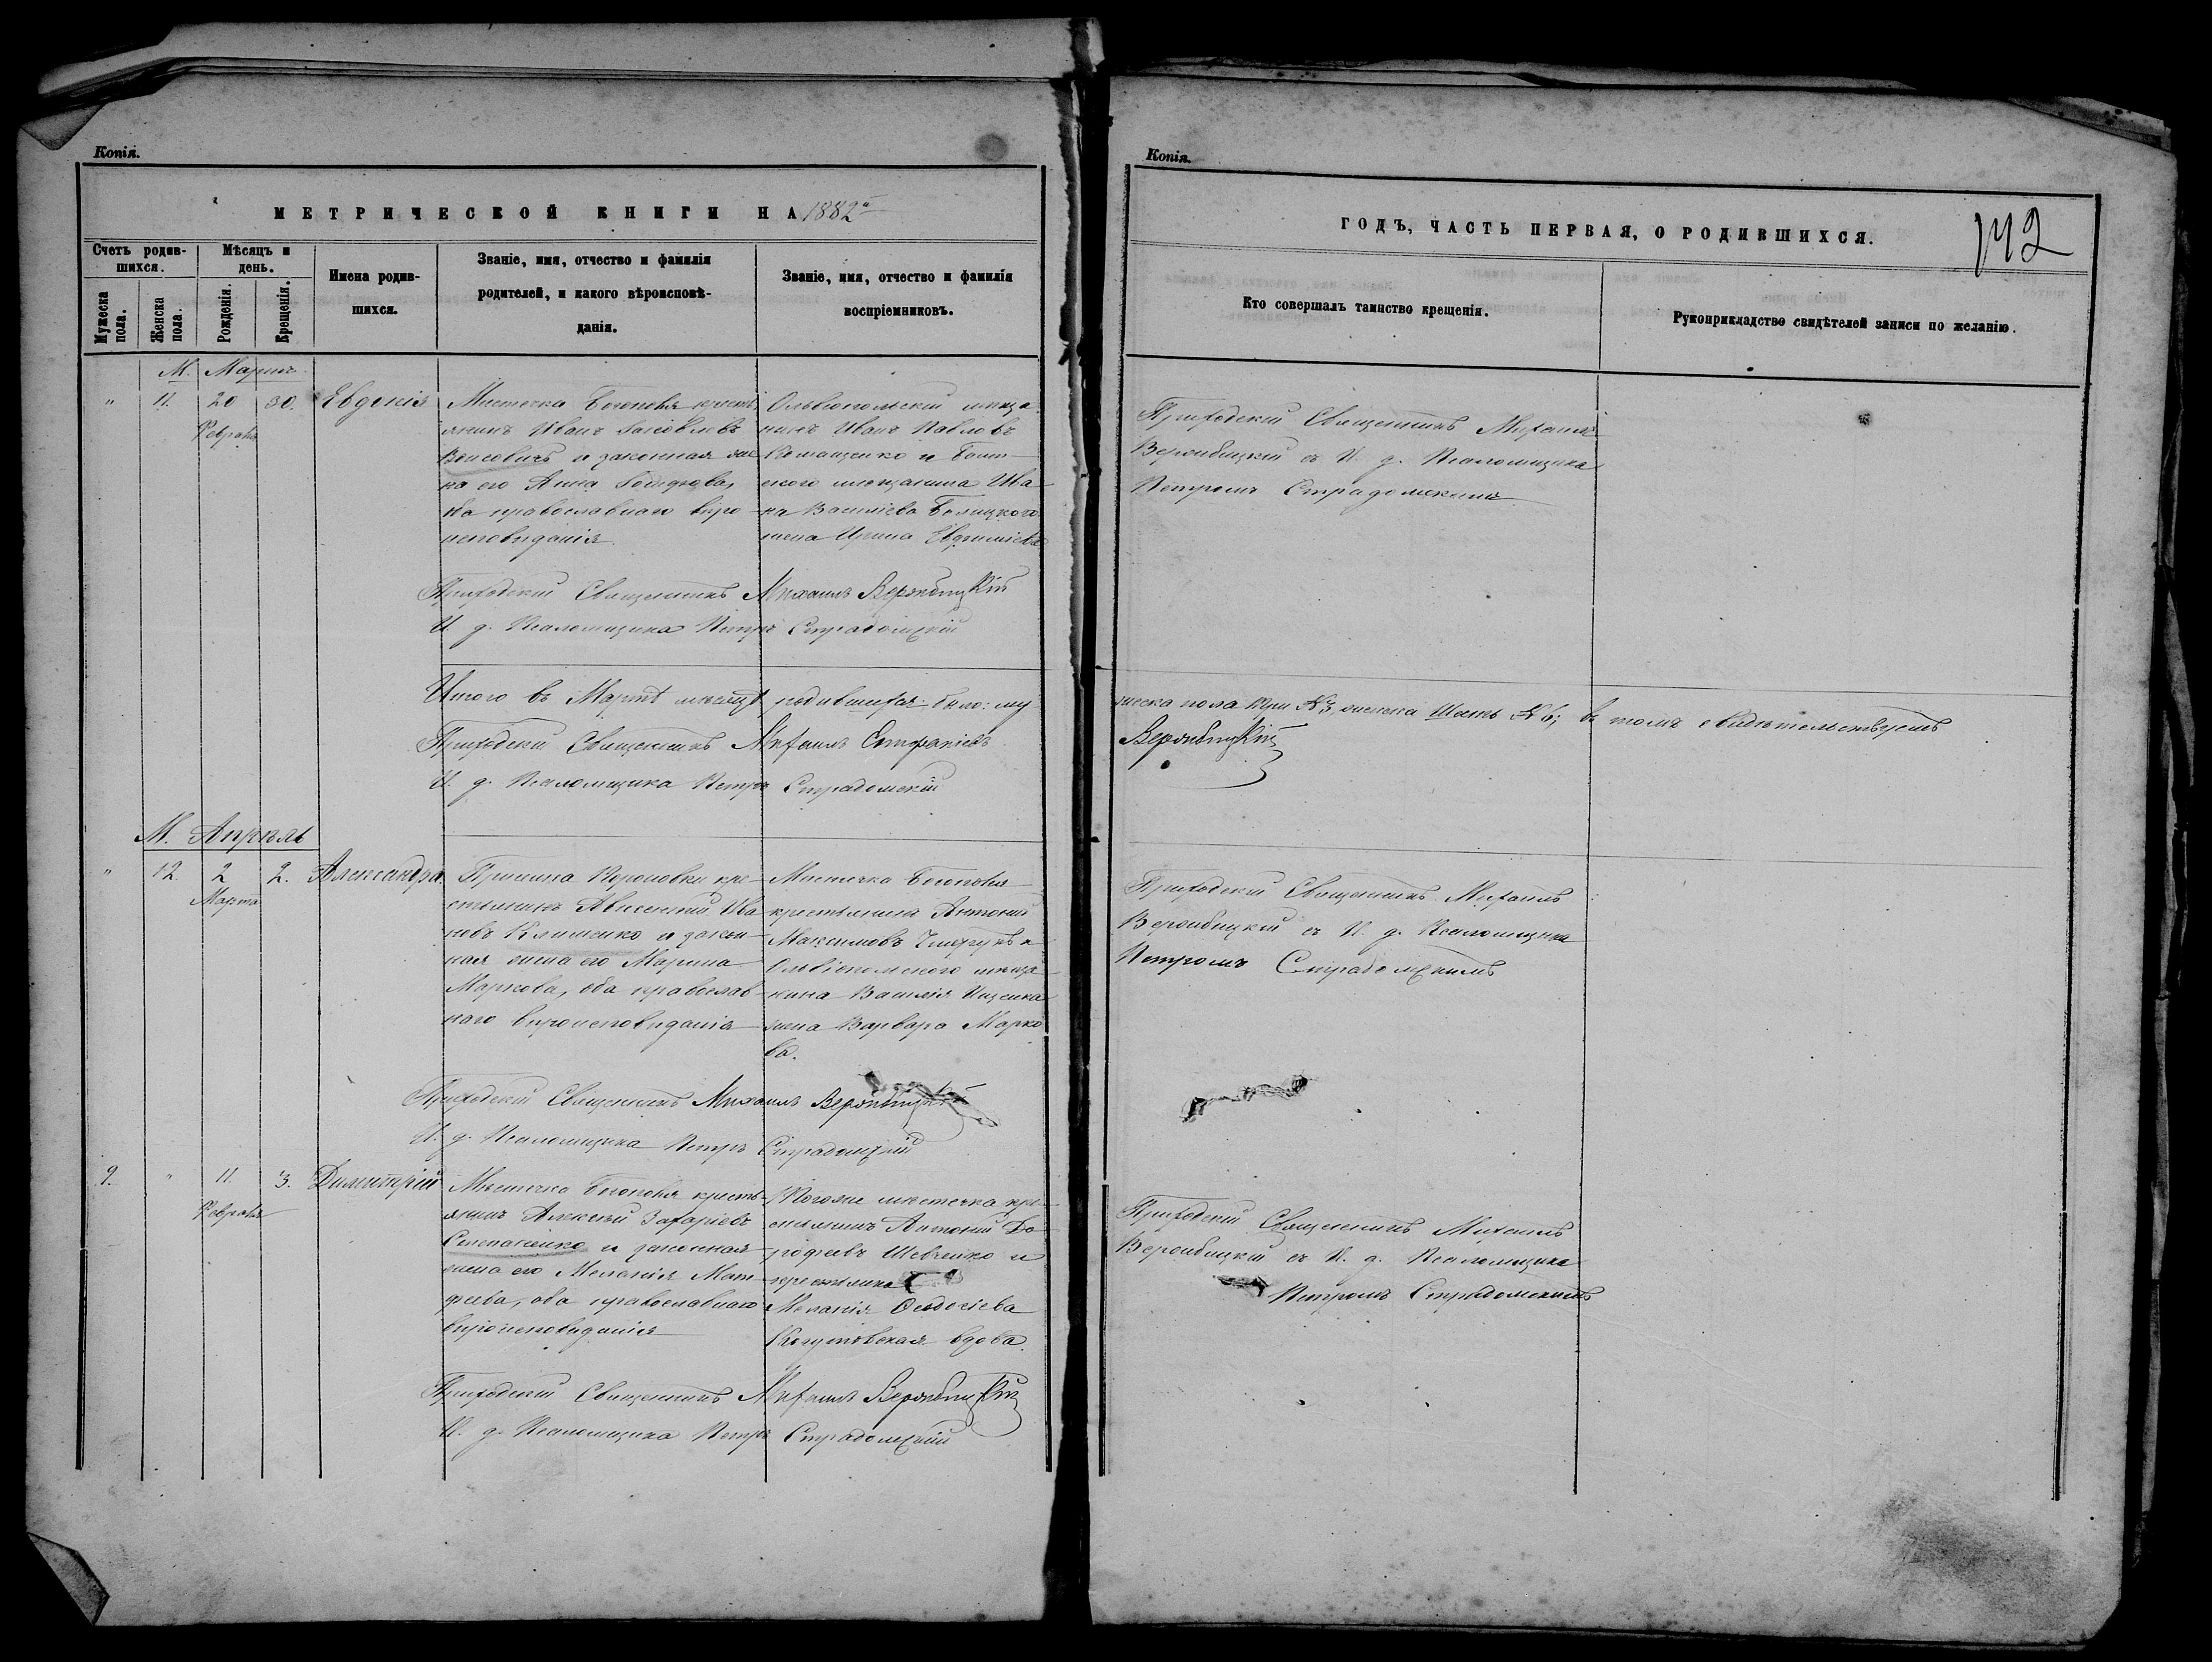 Копія.
МЕТРИЧЕСКОЙ КНИГИ НА 1882й
Счетъ родив-
шихся.
Мѣсяцъ и
день.
Мужеска
пола.
Женска
пола.
Рожденія.
Крещенія.
Имена родив-
шихся.
Званіе, имя, отчество и фамилія
родителей, и какого вѣроисповѣ-
данія.
Званіе, имя, отчество и фамилія
воспріемниковъ.
М. Мартъ
" 11. 20 30. Евдокія
Февраля
Мѣстечка Богополя крестъ
янинъ Иванъ Яковлевъ
и законная же
на его Анна
ба православнаго вѣро
исповѣданія
Ольвіопольскій мѣща
нинъ Иванъ Павловъ
и
ского мѣщанина Ива
на Василіева
жена Ирина Евфиміева
Приходскій Священникъ Михаилъ Вербицкій
И. д. Псаломщика Петръ Страдомскій
Итого въ Мартѣ мѣсяцѣ родившихся было: му
Приходскій Священникъ Михаилъ Стефаніевъ
И. д. Псаломщика Петръ Страдомскій
М. Апрѣль
" 12. 2 2. Александра
Марта
кре
стьянинъ Авксентій Ива
новъ Клименко и закон
ная жена его Марина
Маркова, оба православ
наго вѣроисповѣданія
Мѣстечка Богополя
крестьянинъ Антоній
Максимовъ и
Ольвіопольского мѣща
нина Василія Ищенка
жена Варвара Марко
ва.
Приходскій Священникъ Михаилъ Вербицкій
И. д. Псаломщика Петръ Страдомскій
9. " 11. 3. Димитрій
Февраля
Мѣстечка Богополя кресть
янинъ Алексѣй Захаріевъ
Степаненко и законная
жена его Меланія Мат
феева, оба православнаго
вѣроисповѣданія
Тогоже мѣстечка кре
стьянинъ Антоній До
рофеевъ Шевченко и
крестьянка
Меланія Феодосіева
вдова.
Приходскій Священникъ Михаилъ Вербицкій
И. д. Псаломщика Петръ Страдомскій
Копія.
ГОДЪ, ЧАСТЬ ПЕРВАЯ, О РОДИВШИХСЯ.
142
Кто совершалъ таинство крещенія.
Рукоприкладство свидѣтелей записи по желанію.
Приходскій Священникъ Михаилъ
Вербицкій съ И. д. Псаломщика
Петромъ Страдомскимъ
жеска пола три № 3, женска Шесть № 6; въ томъ свидѣтельствуетъ
Вербицкій
Приходскій Священникъ Михаилъ
Вербицкій съ И. д. Псаломщика
Петромъ Страдомскимъ
Приходскій Священникъ Михаилъ
Вербицкій съ И. д. Псаломщика
Петромъ Страдомскимъ